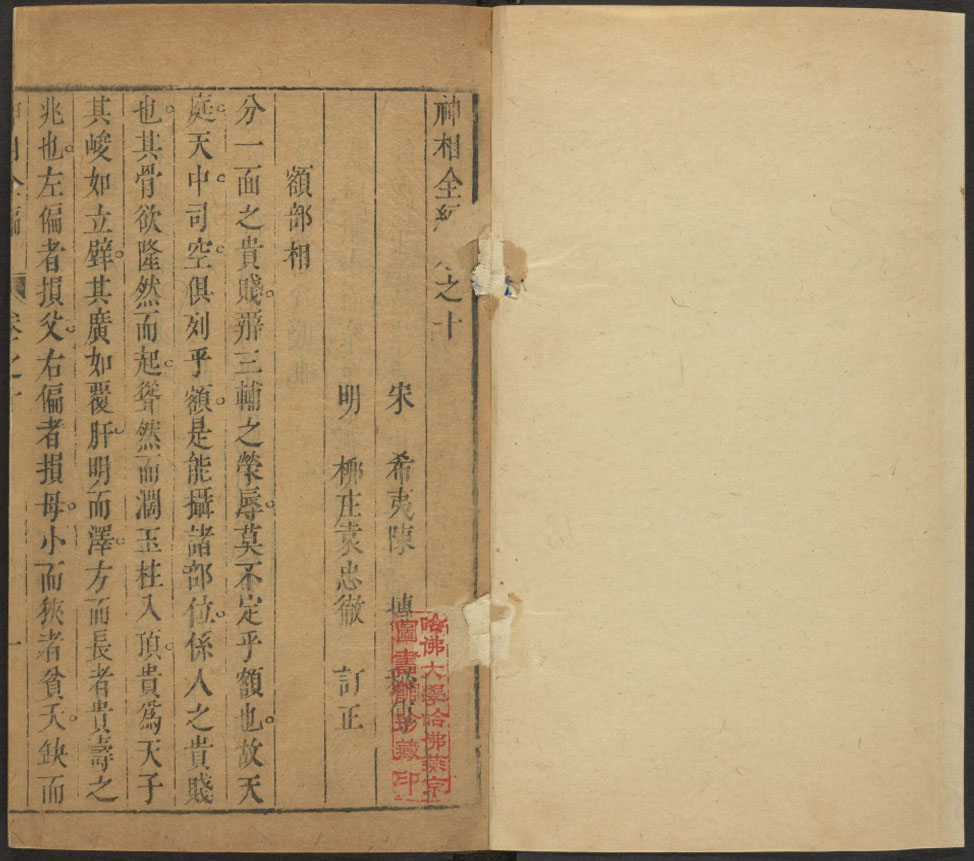 神相全編 卷之十
宋 希夷陳 摶秘傳
明 栁庄袁忠徹 訂正
額部相
分一面之貴賤。辨三輔之榮辱。莫不定乎額也。故天
庭。天中。司空。俱列乎額。是能攝諸部位。係人之貴賤
也。其骨欲隆然而起。聳然而濶。玉柱入頂。貴爲天子
其峻如立壁。其廣如覆肝。明而澤。方而長者。貴壽之
兆也。左偏者損父。右偏者損母。小而狹者貧夭。缺而
神相全編 卷之十 一
哈佛大學哈佛燕京
圖書館珍藏印